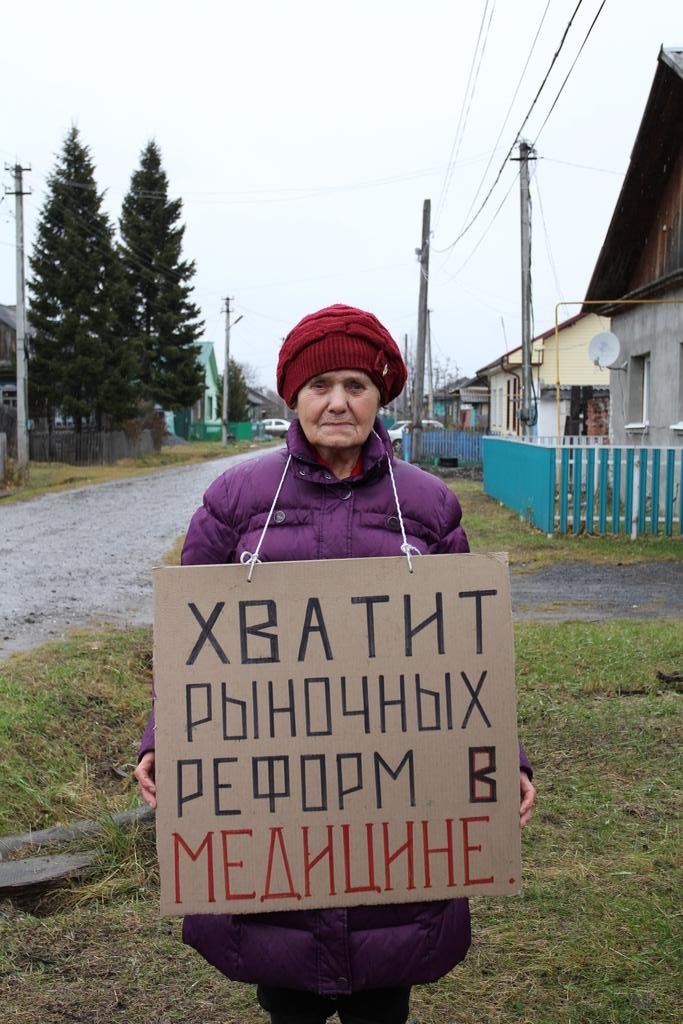 ХВАТИТ
РЫНОЧНЫХ
РЕФОРМ В
МЕДИЦИНЕ.